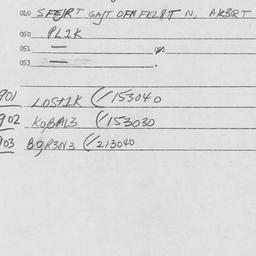 060 SFEJRT GAJT OFM FELBT N, AKBRT
050 PL2K
051 —
053 — .
901 LDST1K (/153040
902 KOBML3 (/153030
903 BGR30V3 (/213040